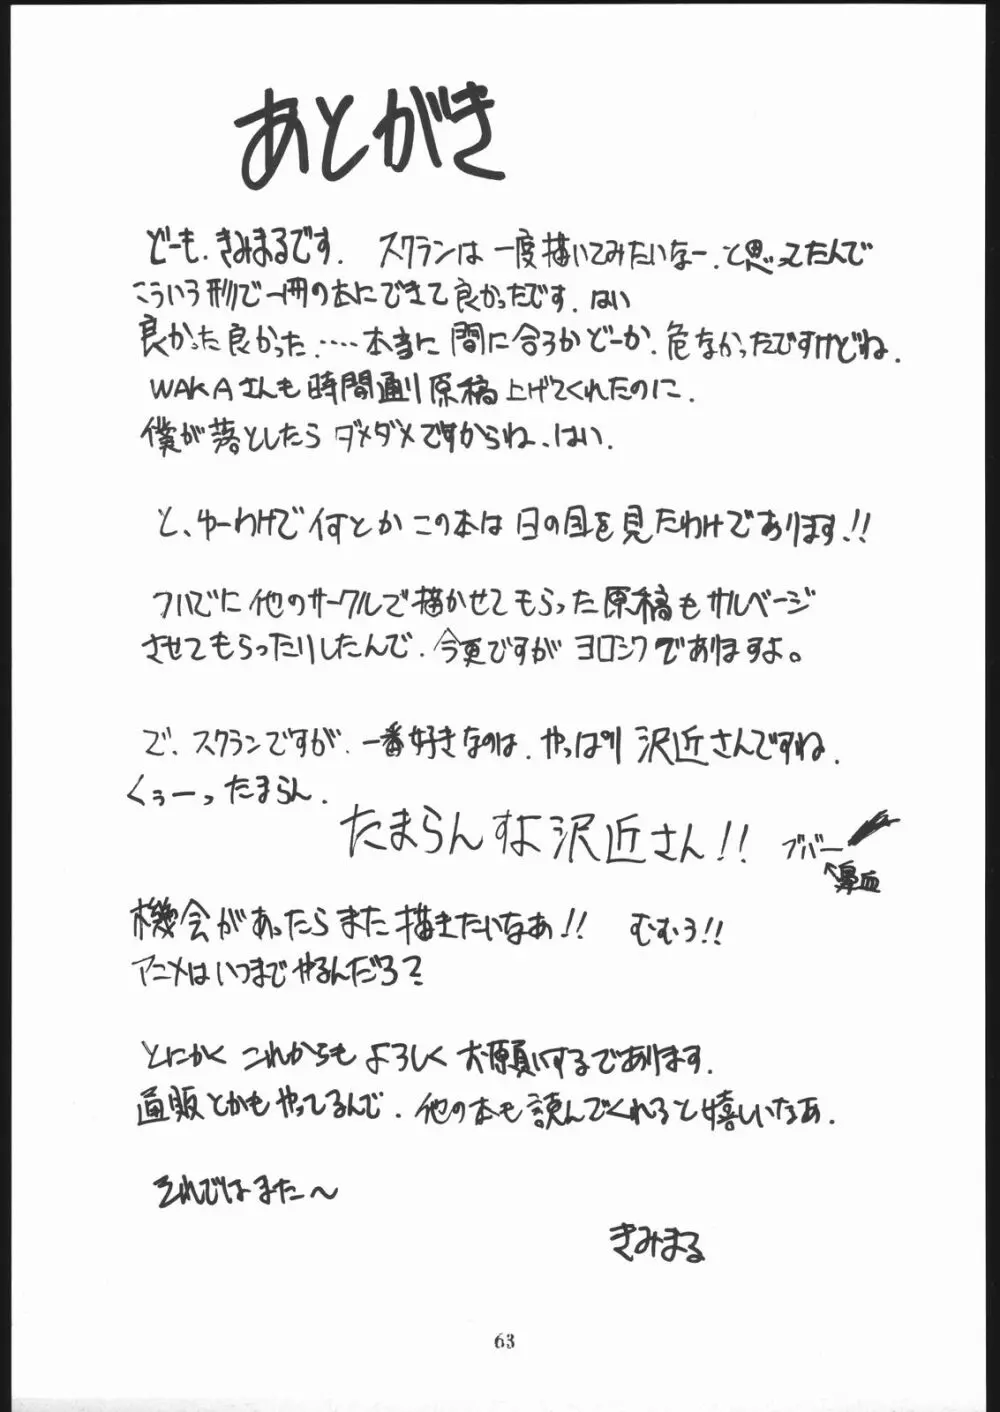 あとがき
どーも、きみまるです. スクランは一度描いてみたいなー、と思ってたんで
こういう形で一冊の本にできて良かったです. はい
良かった良かった.‥‥本当に間に合うかどーか、危なかったですけどね.
WAKAさんも時間通り原稿上げてくれたのに.
僕が落としたらダメダメですからね、はい.
と、ゆーわけで何とかこの本は日の目を見たわけであります!!
ついでに他のサークルで描かせてもらった原稿もサルベージ
させてもらったりしたんで、今更ですがヨロシクでありますよ。
で、スクランですが、一番好きなのは、やっぱり沢近さんですね.
くぅーったまらん.
たまらんすよ沢近さん!! ブバー
↑鼻血
機会があったらまた描きたいなあ!! むむう!!
アニメはいつまでやるんだろ?
とにかくこれからもよろしくお願いするであります.
通販とかもやってるんで、他の本も読んでくれると嬉しいなあ.
それではまた〜
きみまる
63